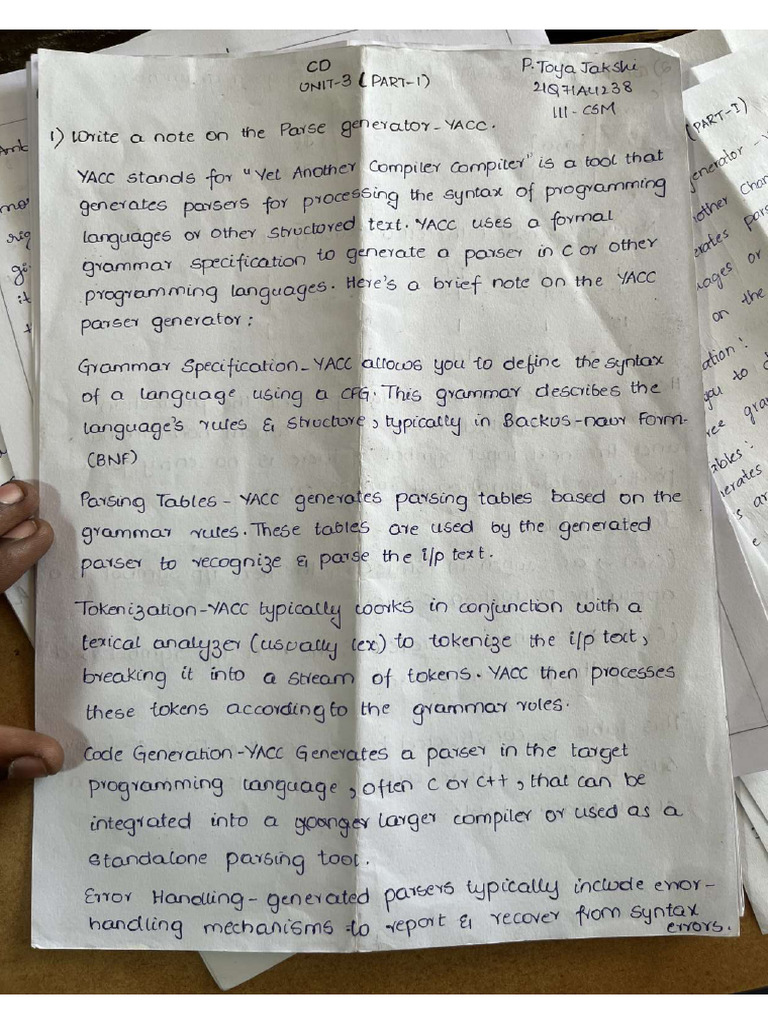 CD
UNIT-3 (PART-1)
P. Toya Jakshi
21Q71A4238
III - CSM
1) Write a note on the Parse generator - YACC.
YACC stands for "Yet Another Compiler Compiler" is a tool that
generates parsers for processing the syntax of programming
languages or other structured text. YACC uses a formal
grammar specification to generate a parser in C or other
programming languages. Here's a brief note on the YACC
parser generator:
Grammar Specification - YACC allows you to define the syntax
of a language using a CFG. This grammar describes the
language's rules & structure, typically in Backus-naur Form-
(BNF)
Parsing Tables - YACC generates parsing tables based on the
grammar rules. These tables are used by the generated
parser to recognize & parse the i/p text.
Tokenization - YACC typically works in conjunction with a
lexical analyzer (usually lex) to tokenize the i/p text,
breaking it into a stream of tokens. YACC then processes
these tokens according to the grammar roles.
Code Generation - YACC Generates a parser in the target
programming language, often C or C++, that can be
integrated into a larger compiler or used as a
standalone parsing tool.
Error Handling - generated parsers typically include error-
handling mechanisms to report & recover from syntax
errors.
(PART-I)
generator -
other
erates
ages or
on the
ation:
you to
ree
ables:
erates